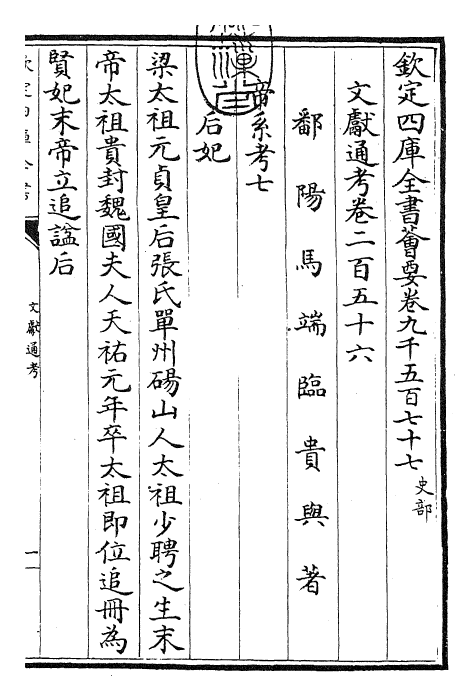 欽定四庫全書薈要卷九千五百七十七 史部
文獻通考卷二百五十六
鄱陽馬端臨貴與著
帝系考七
后妃
梁太祖元貞皇后張氏單州碭山人太祖少聘之生末
帝太祖貴封魏國夫人天祐元年卒太祖即位追冊為
賢妃末帝立追諡后
文獻通考
一